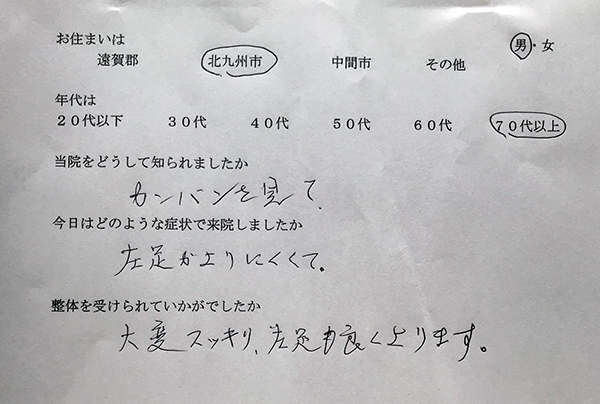 お住まいは
男・女
遠賀郡 北九州市 中間市 その他
年代は
20代以下 30代 40代 50代 60代 70代以上
当院をどうして知られましたか
カンバンを見て、
今日はどのような症状で来院しましたか
左足がよりにくくて。
整体を受けられていかがでしたか
大変スッキリ、左足も良くよります。